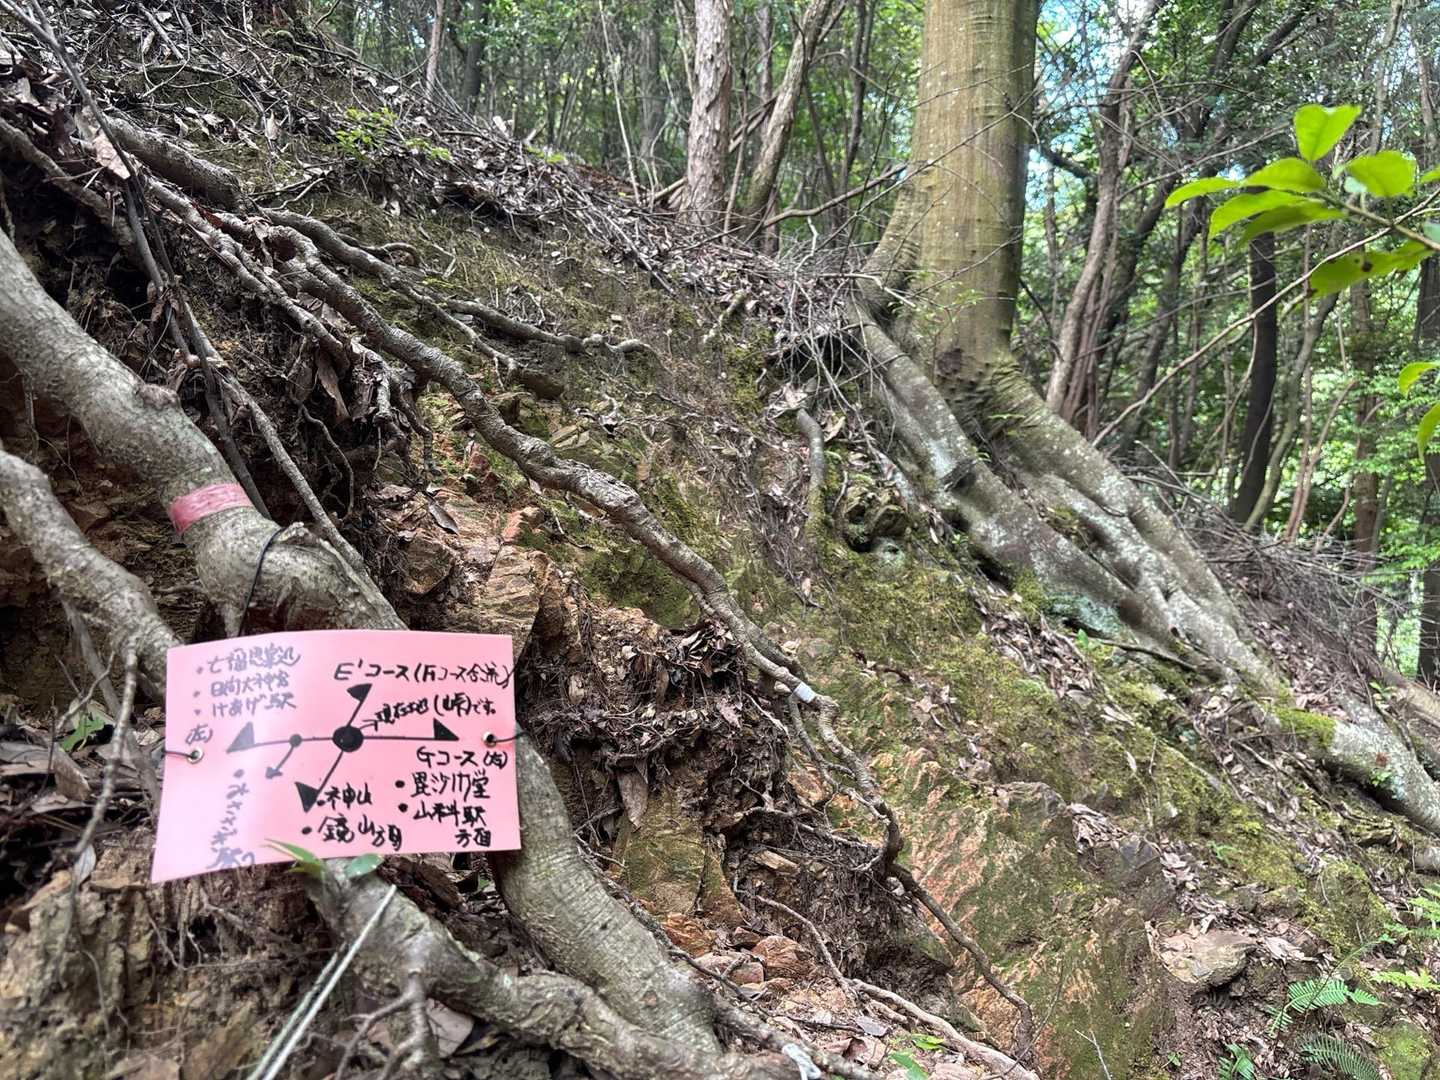 ・七福思案処
・日向大神宮
・けあげ駅
(左)
E'コース(Fコース合流)
現在地(山峠)
Gコース(右)
・毘沙門堂
・山科駅
方面
・神山
・鏡山方面